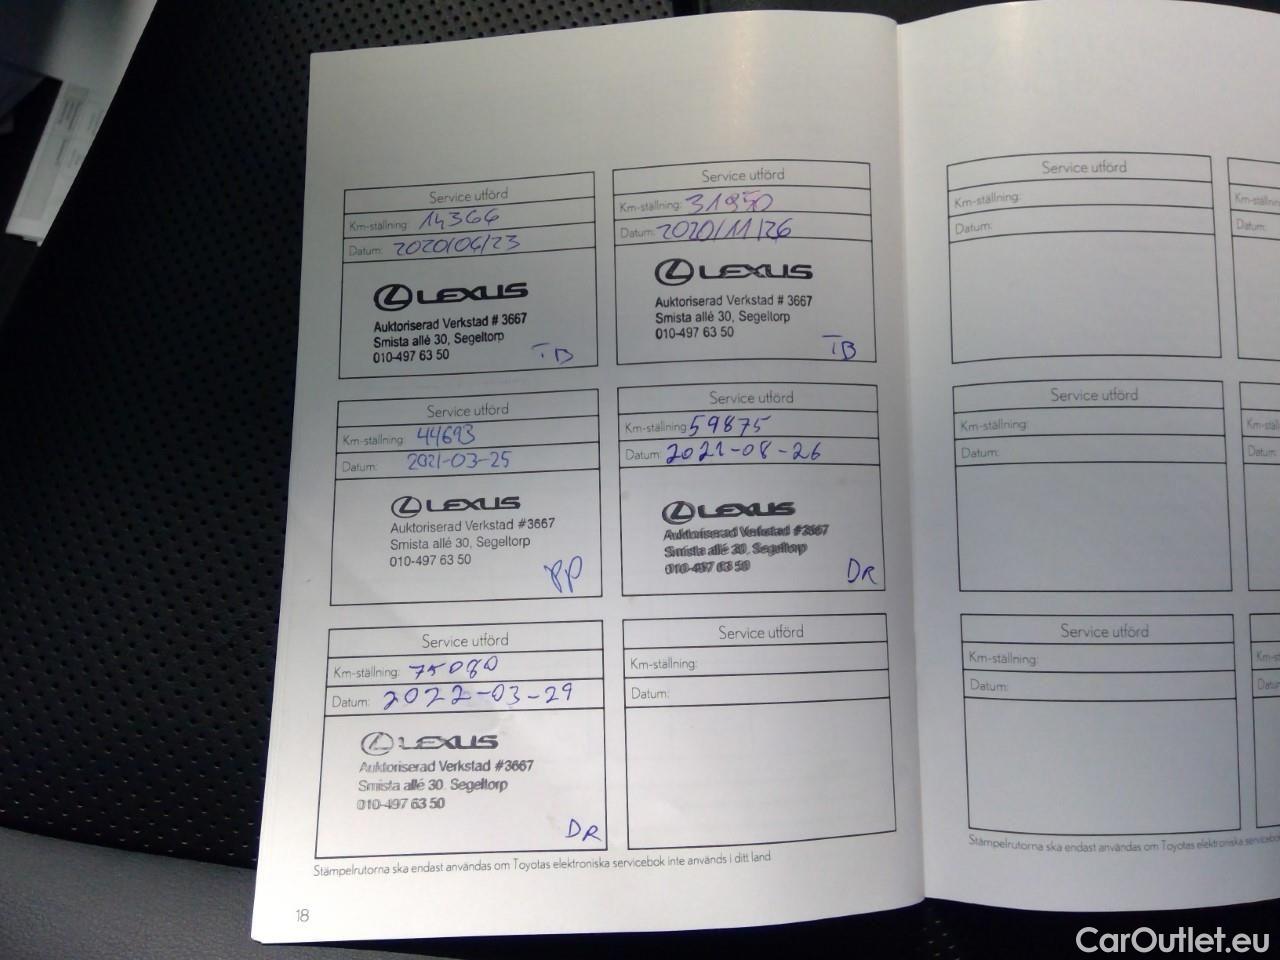 Service utförd
Km-ställning: 14366
Datum: 2020/04/23
LEXUS
Auktoriserad Verkstad # 3667
Smista allé 30, Segeltorp
010-497 63 50
TB
Service utförd
Km-ställning: 31950
Datum: 2020/11/26
LEXUS
Auktoriserad Verkstad # 3667
Smista allé 30, Segeltorp
010-497 63 50
TB
Service utförd
Km-ställning: 44693
Datum: 2021-03-25
LEXUS
Auktoriserad Verkstad #3667
Smista allé 30, Segeltorp
010-497 63 50
PP
Service utförd
Km-ställning: 59875
Datum: 2021-08-26
LEXUS
Auktoriserad Verkstad #3667
Smista allé 30, Segeltorp
010-497 63 50
DR
Service utförd
Km-ställning: 75080
Datum: 2022-03-29
LEXUS
Auktoriserad Verkstad #3667
Smista allé 30, Segeltorp
010-497 63 50
DR
Service utförd
Km-ställning:
Datum:
Stämpelrutorna ska endast användas om Toyotas elektroniska servicebok inte används i ditt land
18
Service utförd
Km-ställning:
Datum:
Service utförd
Km-ställning:
Datum:
Service utförd
Km-ställning:
Datum:
Stämpelrutorna ska endast användas om Toyotas elektroniska
Datum:
Datum:
CarOutlet.eu